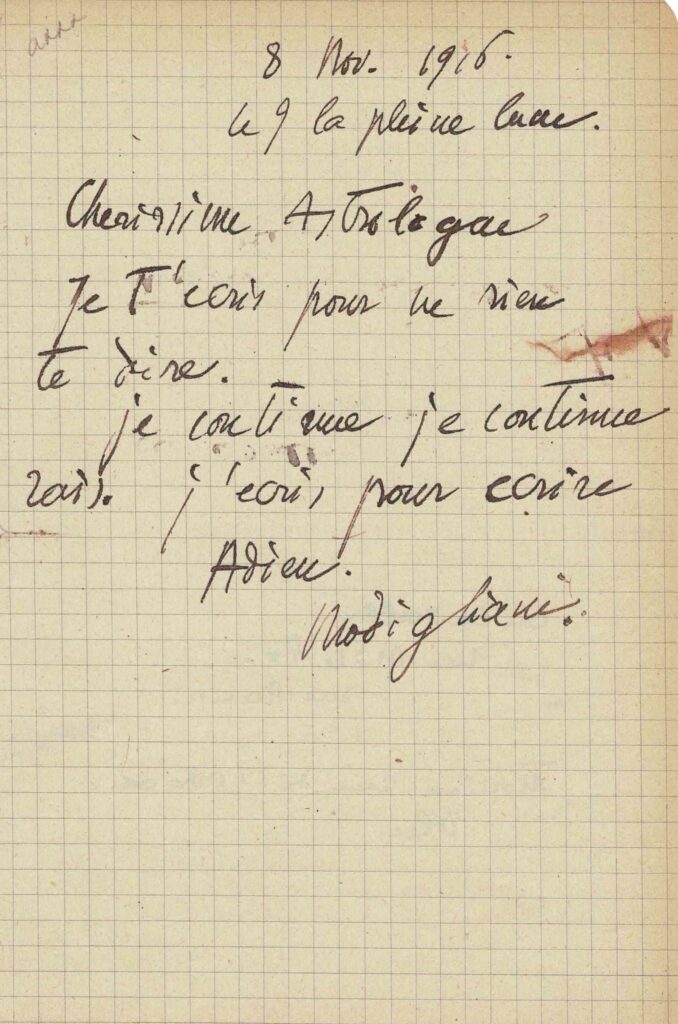 8 Nov. 1916.
le 9 la pleine lune.
Cherissime Astrologue
Je T'ecris pour ne rien
te dire.
je continue je continue
rais. j'ecris pour ecrire
Adieu.
Modigliani.